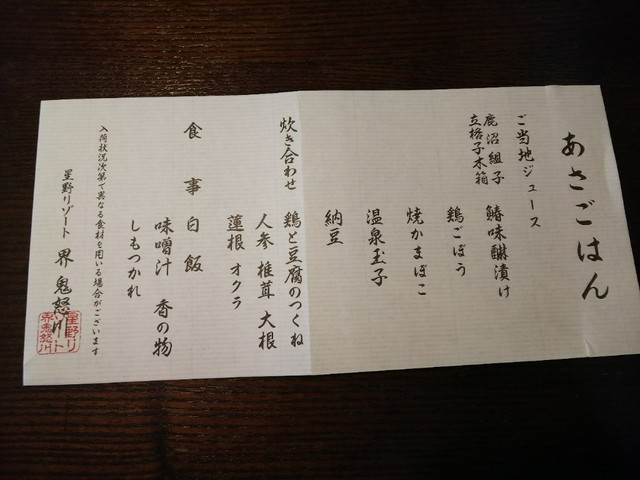 あさごはん
ご当地ジュース
鹿沼組子
立格子木箱
鰆味醂漬け
鶏ごぼう
焼かまぼこ
温泉玉子
納豆
炊き合わせ 鶏と豆腐のつくね
人参 椎茸 大根
蓮根 オクラ
食事 白飯
味噌汁 香の物
しもつかれ
入荷状況次第で異なる食材を用いる場合がございます
星野リゾート 界 鬼怒川
星野リ
ゾート
界鬼怒川